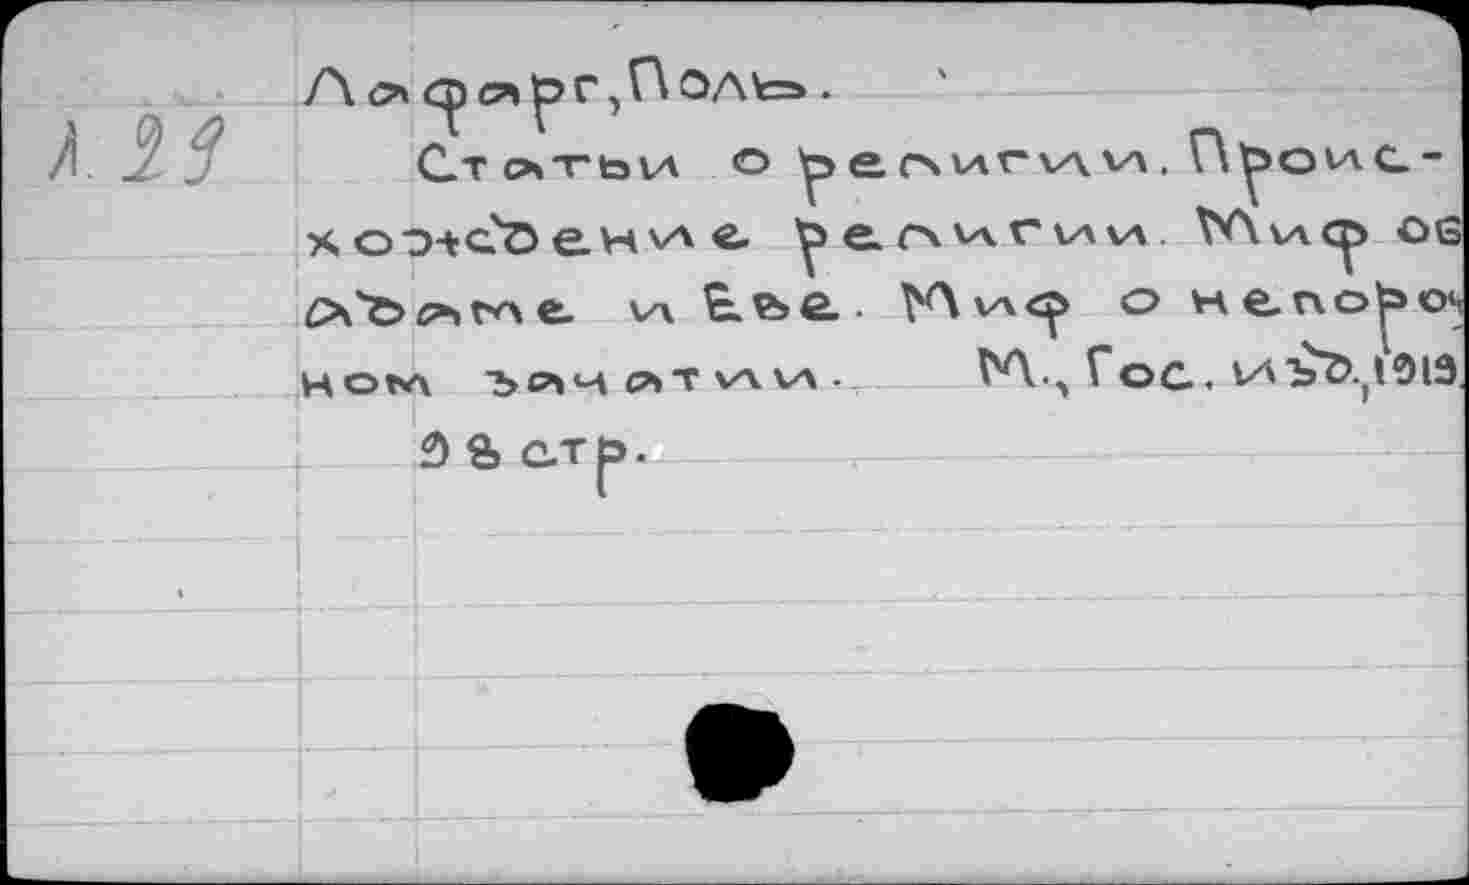 Л. 29
Лафарг, Поль.
Статьи о религии. Проис-
хождение религии. Миф об
Адаме и Еве. Миф о непороч
ном зачатии. М., Гос. изд., 1919.
98 стр.